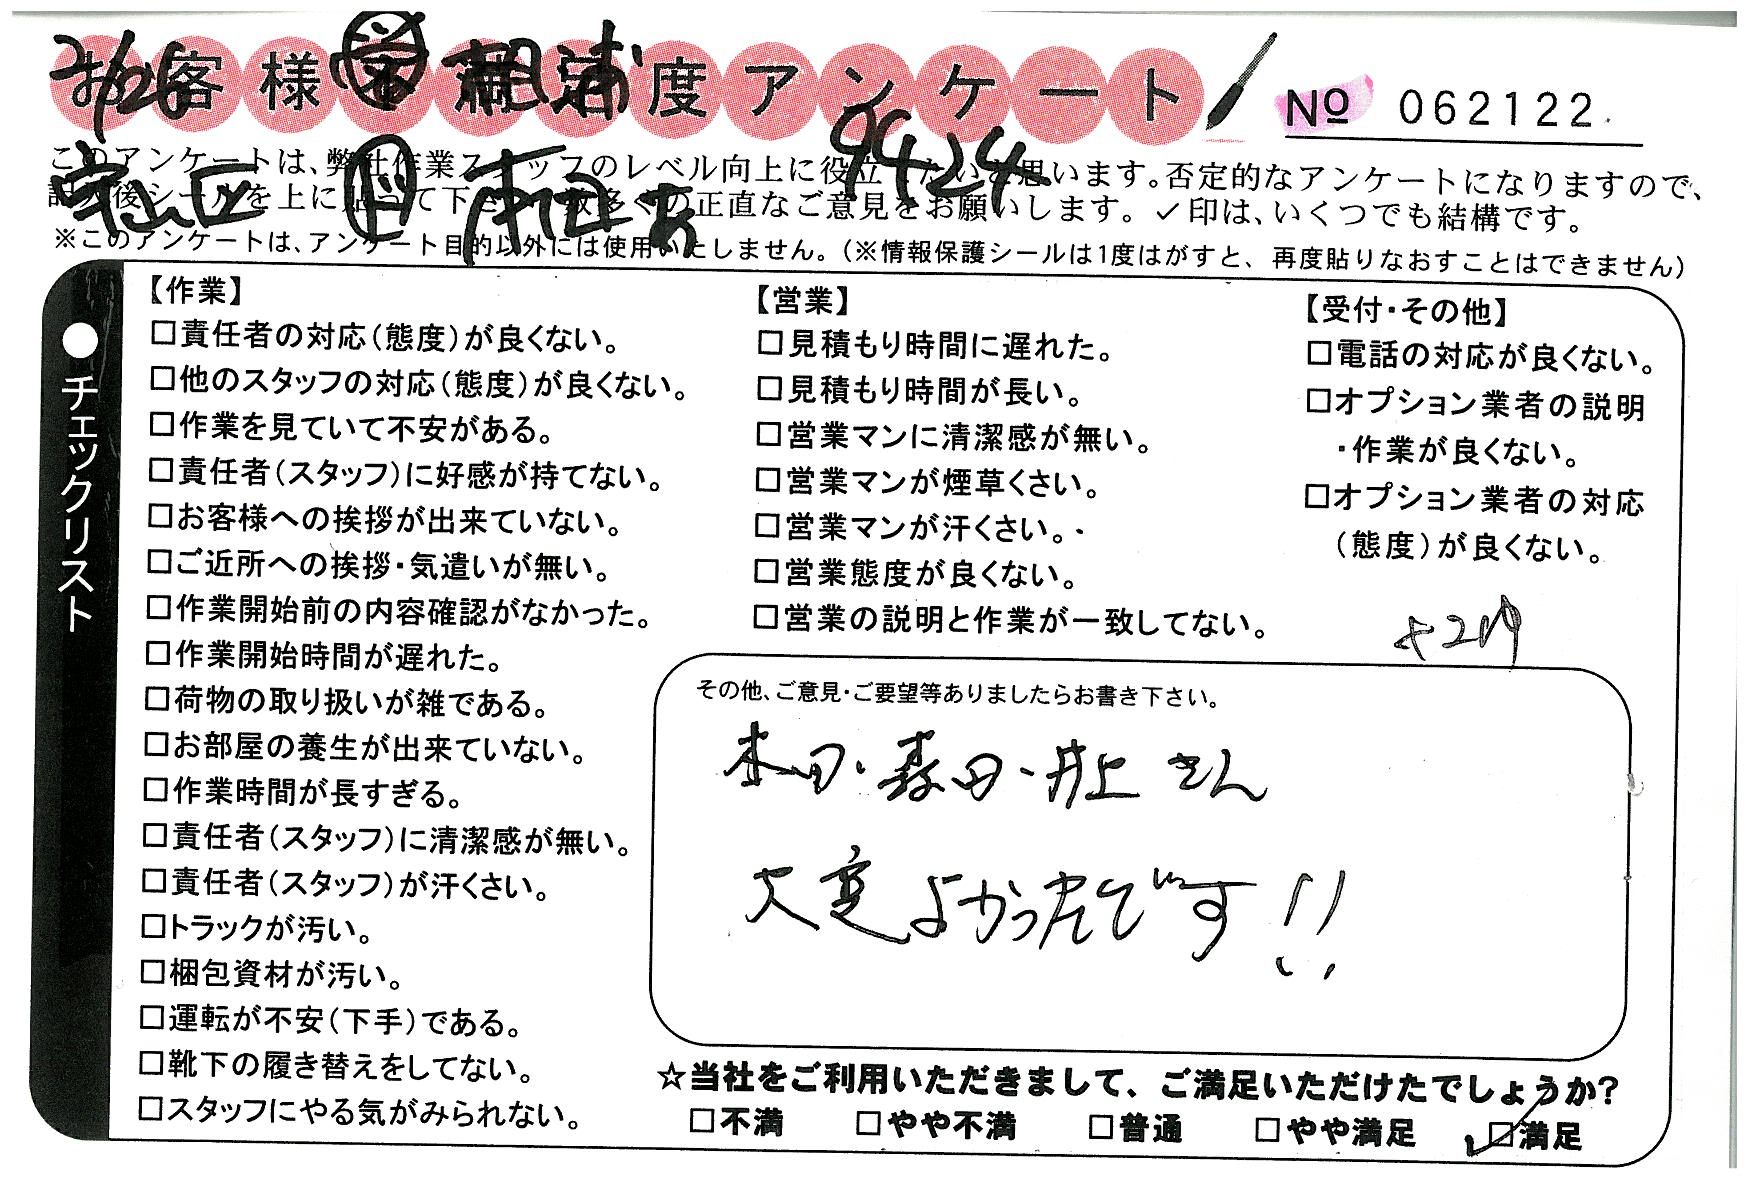 2/26
お客様不満足度アンケート
№ 062122
9424
このアンケートは、弊社作業スタッフのレベル向上に役立てたいと思います。否定的なアンケートになりますので、
記入後シールを上に貼って下さい。数多くの正直なご意見をお願いします。✓印は、いくつでも結構です。
守山区
※このアンケートは、アンケート目的以外には使用いたしません。(※情報保護シールは1度はがすと、再度貼りなおすことはできません)
●チェックリスト
【作業】
□責任者の対応(態度)が良くない。
□他のスタッフの対応(態度)が良くない。
□作業を見ていて不安がある。
□責任者(スタッフ)に好感が持てない。
□お客様への挨拶が出来ていない。
□ご近所への挨拶・気遣いが無い。
□作業開始前の内容確認がなかった。
□作業開始時間が遅れた。
□荷物の取り扱いが雑である。
□お部屋の養生が出来ていない。
□作業時間が長すぎる。
□責任者(スタッフ)に清潔感が無い。
□責任者(スタッフ)が汗くさい。
□トラックが汚い。
□梱包資材が汚い。
□運転が不安(下手)である。
□靴下の履き替えをしてない。
□スタッフにやる気がみられない。
【営業】
□見積もり時間に遅れた。
□見積もり時間が長い。
□営業マンに清潔感が無い。
□営業マンが煙草くさい。
□営業マンが汗くさい。
□営業態度が良くない。
□営業の説明と作業が一致してない。
【受付・その他】
□電話の対応が良くない。
□オプション業者の説明
・作業が良くない。
□オプション業者の対応
(態度)が良くない。
その他、ご意見・ご要望等ありましたらお書き下さい。
本田・森田・井上 さん
大変よかったです!!
☆当社をご利用いただきまして、ご満足いただけたでしょうか?
□不満 □やや不満 □普通 □やや満足 ☑満足